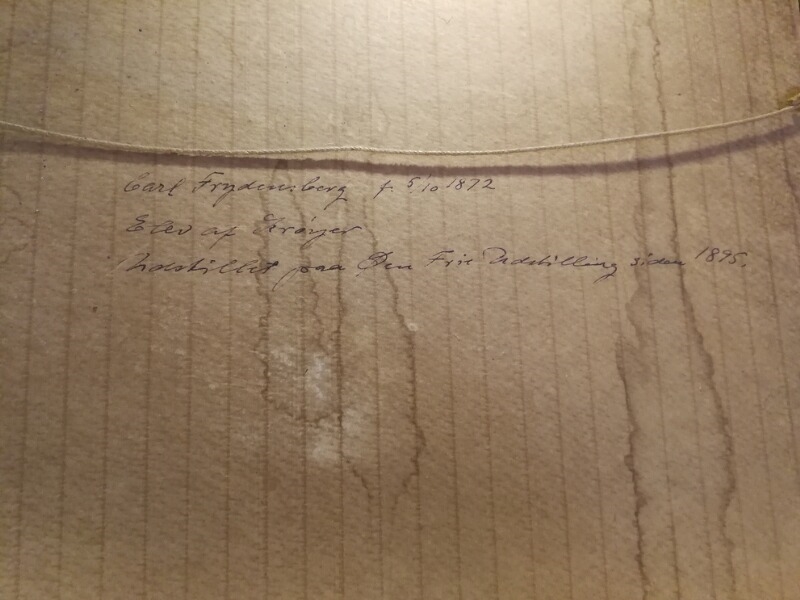 Carl Frydensberg f. 5/10 1872
Elev af Krøyer
Udstillet paa Den Frie Udstilling siden 1895.